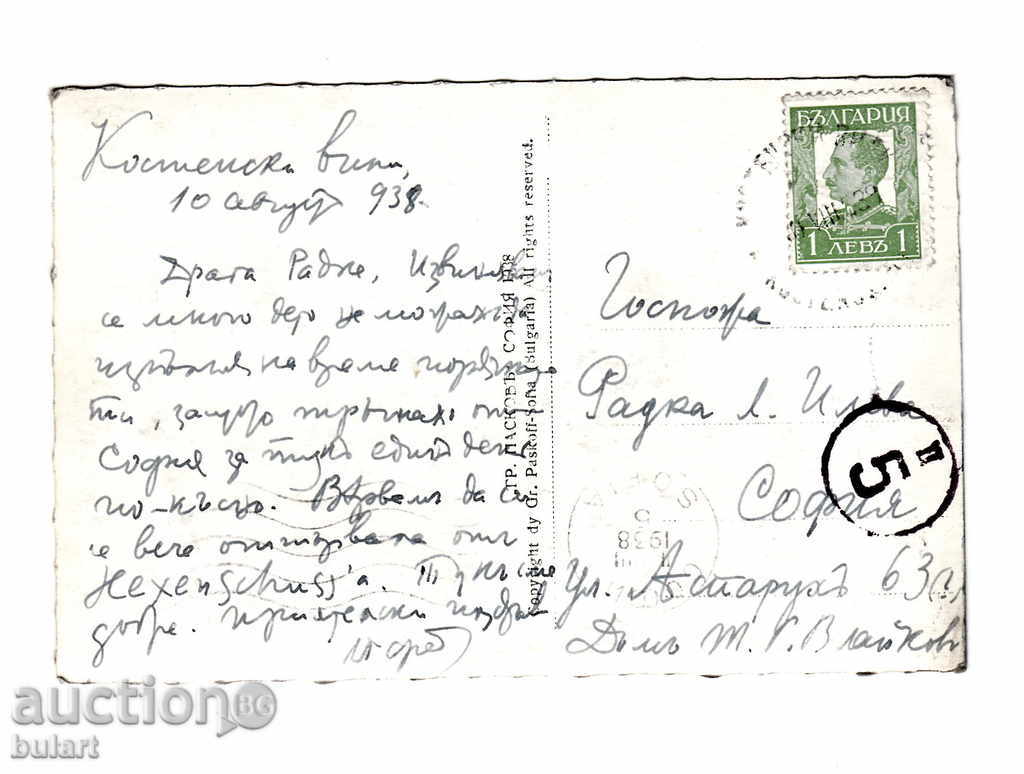 Костенски бани,
10 августъ 938.
Драга Радке, Извинявай
се много дето не можахъ да
изпълня на време поръчката
ти, защото тръгнахъ отъ
София за тукъ единъ день
по-късно. Вѣрвамъ да си
се вече отървала отъ
Hexenschuss'а. Тукъ съмъ
добре.
ТР. ПАСКОВЪ, СОФИЯ 1938
Copyright dy Gr. Paskoff-Sofia (Bulgaria) All rights reserved.
БЪЛГАРИЯ
1 ЛЕВЪ 1
Госпожа
Радка Л. Илева
София
Ул. Аспарухъ 63
Домъ Т. Г. Влайковъ
П
5
SOFIA
1938
auction BG
bulart